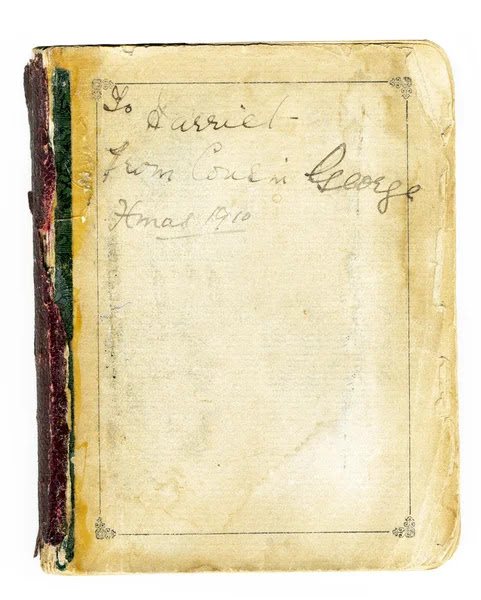 To Harriet
from Cousin George
Xmas 1910